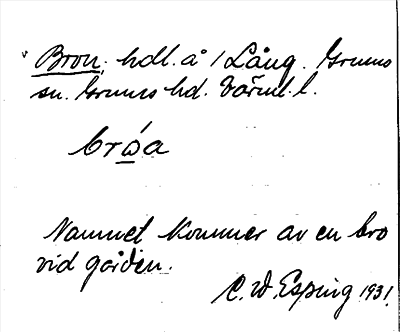 Bron, hdl. å 1 Lång. Grums
sn. Grums hd. Värml. l.
brωa
Namnet kommer av en bro
vid gården.
C. W. Esping 1931.